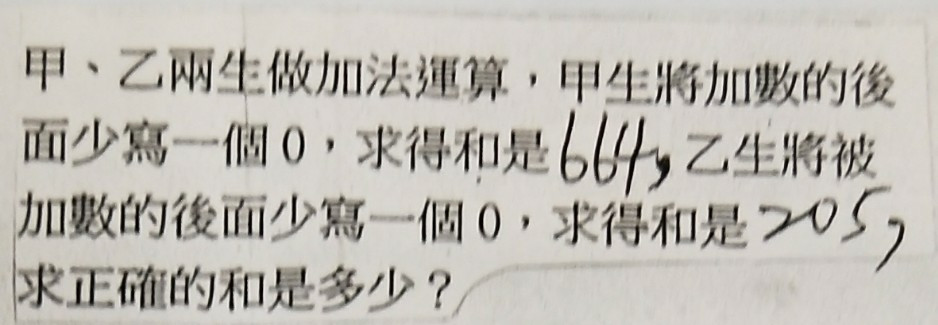 甲、乙兩生做加法運算，甲生將加數的後
面少寫一個0，求得和是664，乙生將被
加數的後面少寫一個0，求得和是205，
求正確的和是多少？